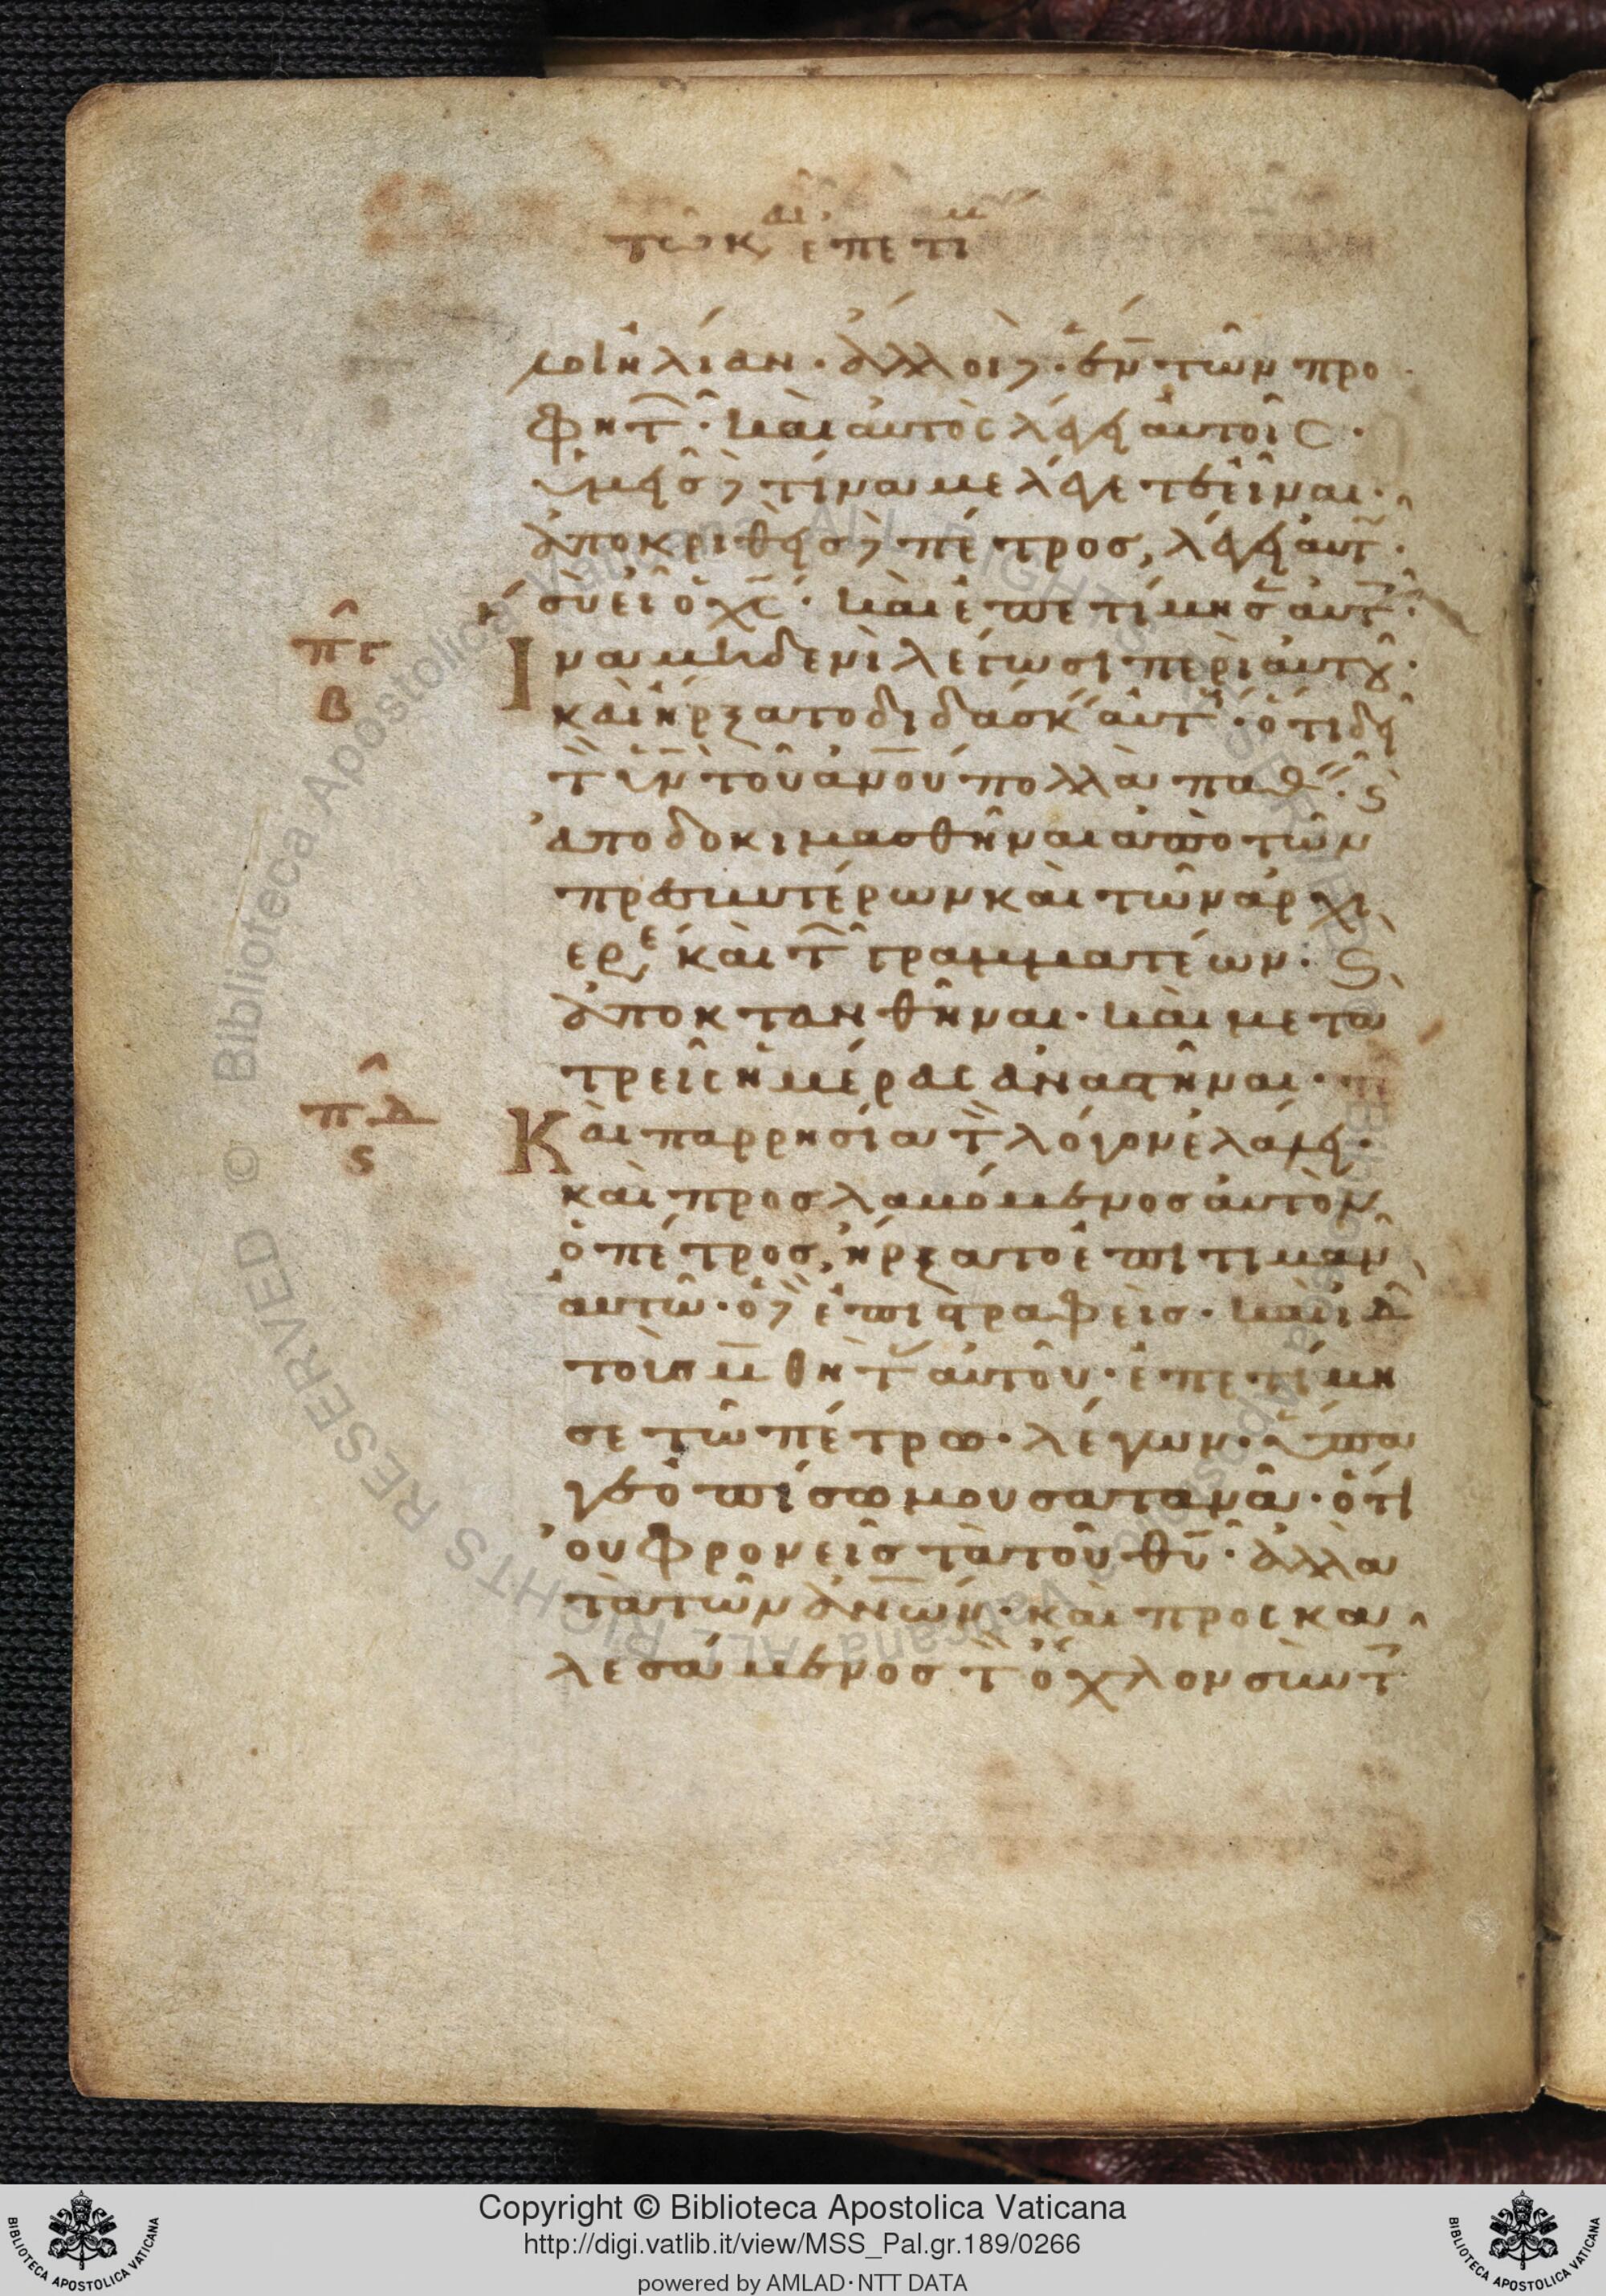 τω και επετιμ
λοι ἡλίαν· ἄλλοι δὲ· ἕν τῶν προ
φητῶν· καὶ αὐτὸς λέγει αὐτοῖς·
ὑμεῖς δὲ τίνα με λέγετε εἶναι·
ἀποκριθεὶς δὲ πέτρος, λέγει αὐτῶ·
σὺ εἶ ὁ χς· καὶ ἐπετίμησεν αὐτοῖς
πγ
β
Ἵνα μηδενὶ λέγωσι περὶ αὐτοῦ·
καὶ ἤρξατο διδάσκειν αὐτοὺς· ὅτι δεῖ
τὸν υν τοῦ ανου πολλὰ παθεῖν· ϛ
ἀποδοκιμασθῆναι ἀπὸ τῶν
πρεσβυτέρων καὶ τῶν ἀρχι
ερέων καὶ τῶν γραμματέων· ϛ
ἀποκτανθῆναι· καὶ μετὰ
τρεῖς ἡμέρας ἀναστῆναι·
πδ
ϛ
Καὶ παρρησία τὸν λόγον ἐλάλει·
καὶ προσλαβόμενος αὐτὸν
ὁ πέτρος, ἤρξατο ἐπιτιμᾶν
αὐτῶ· ὁ δὲ ἐπιστραφεὶς· καὶ ἰδὼν
τοὺς μαθητὰς αὐτοῦ· ἐπετίμη
σε τῶ πέτρω· λέγων· ὕπα
γε ὀπίσω μου σατανᾶ· ὅτι
οὐ φρονεῖς τὰ τοῦ θυ· ἀλλὰ
τὰ τῶν ανων· καὶ προσκα
λεσάμενος τὸν ὄχλον σὺν τοῖς
Copyright © Biblioteca Apostolica Vaticana
http://digi.vatlib.it/view/MSS_Pal.gr.189/0266
powered by AMLAD·NTT DATA
BIBLIOTECA APOSTOLICA VATICANA
BIBLIOTECA APOSTOLICA VATICANA
© Biblioteca Apostolica Vaticana ALL RIGHTS RESERVED